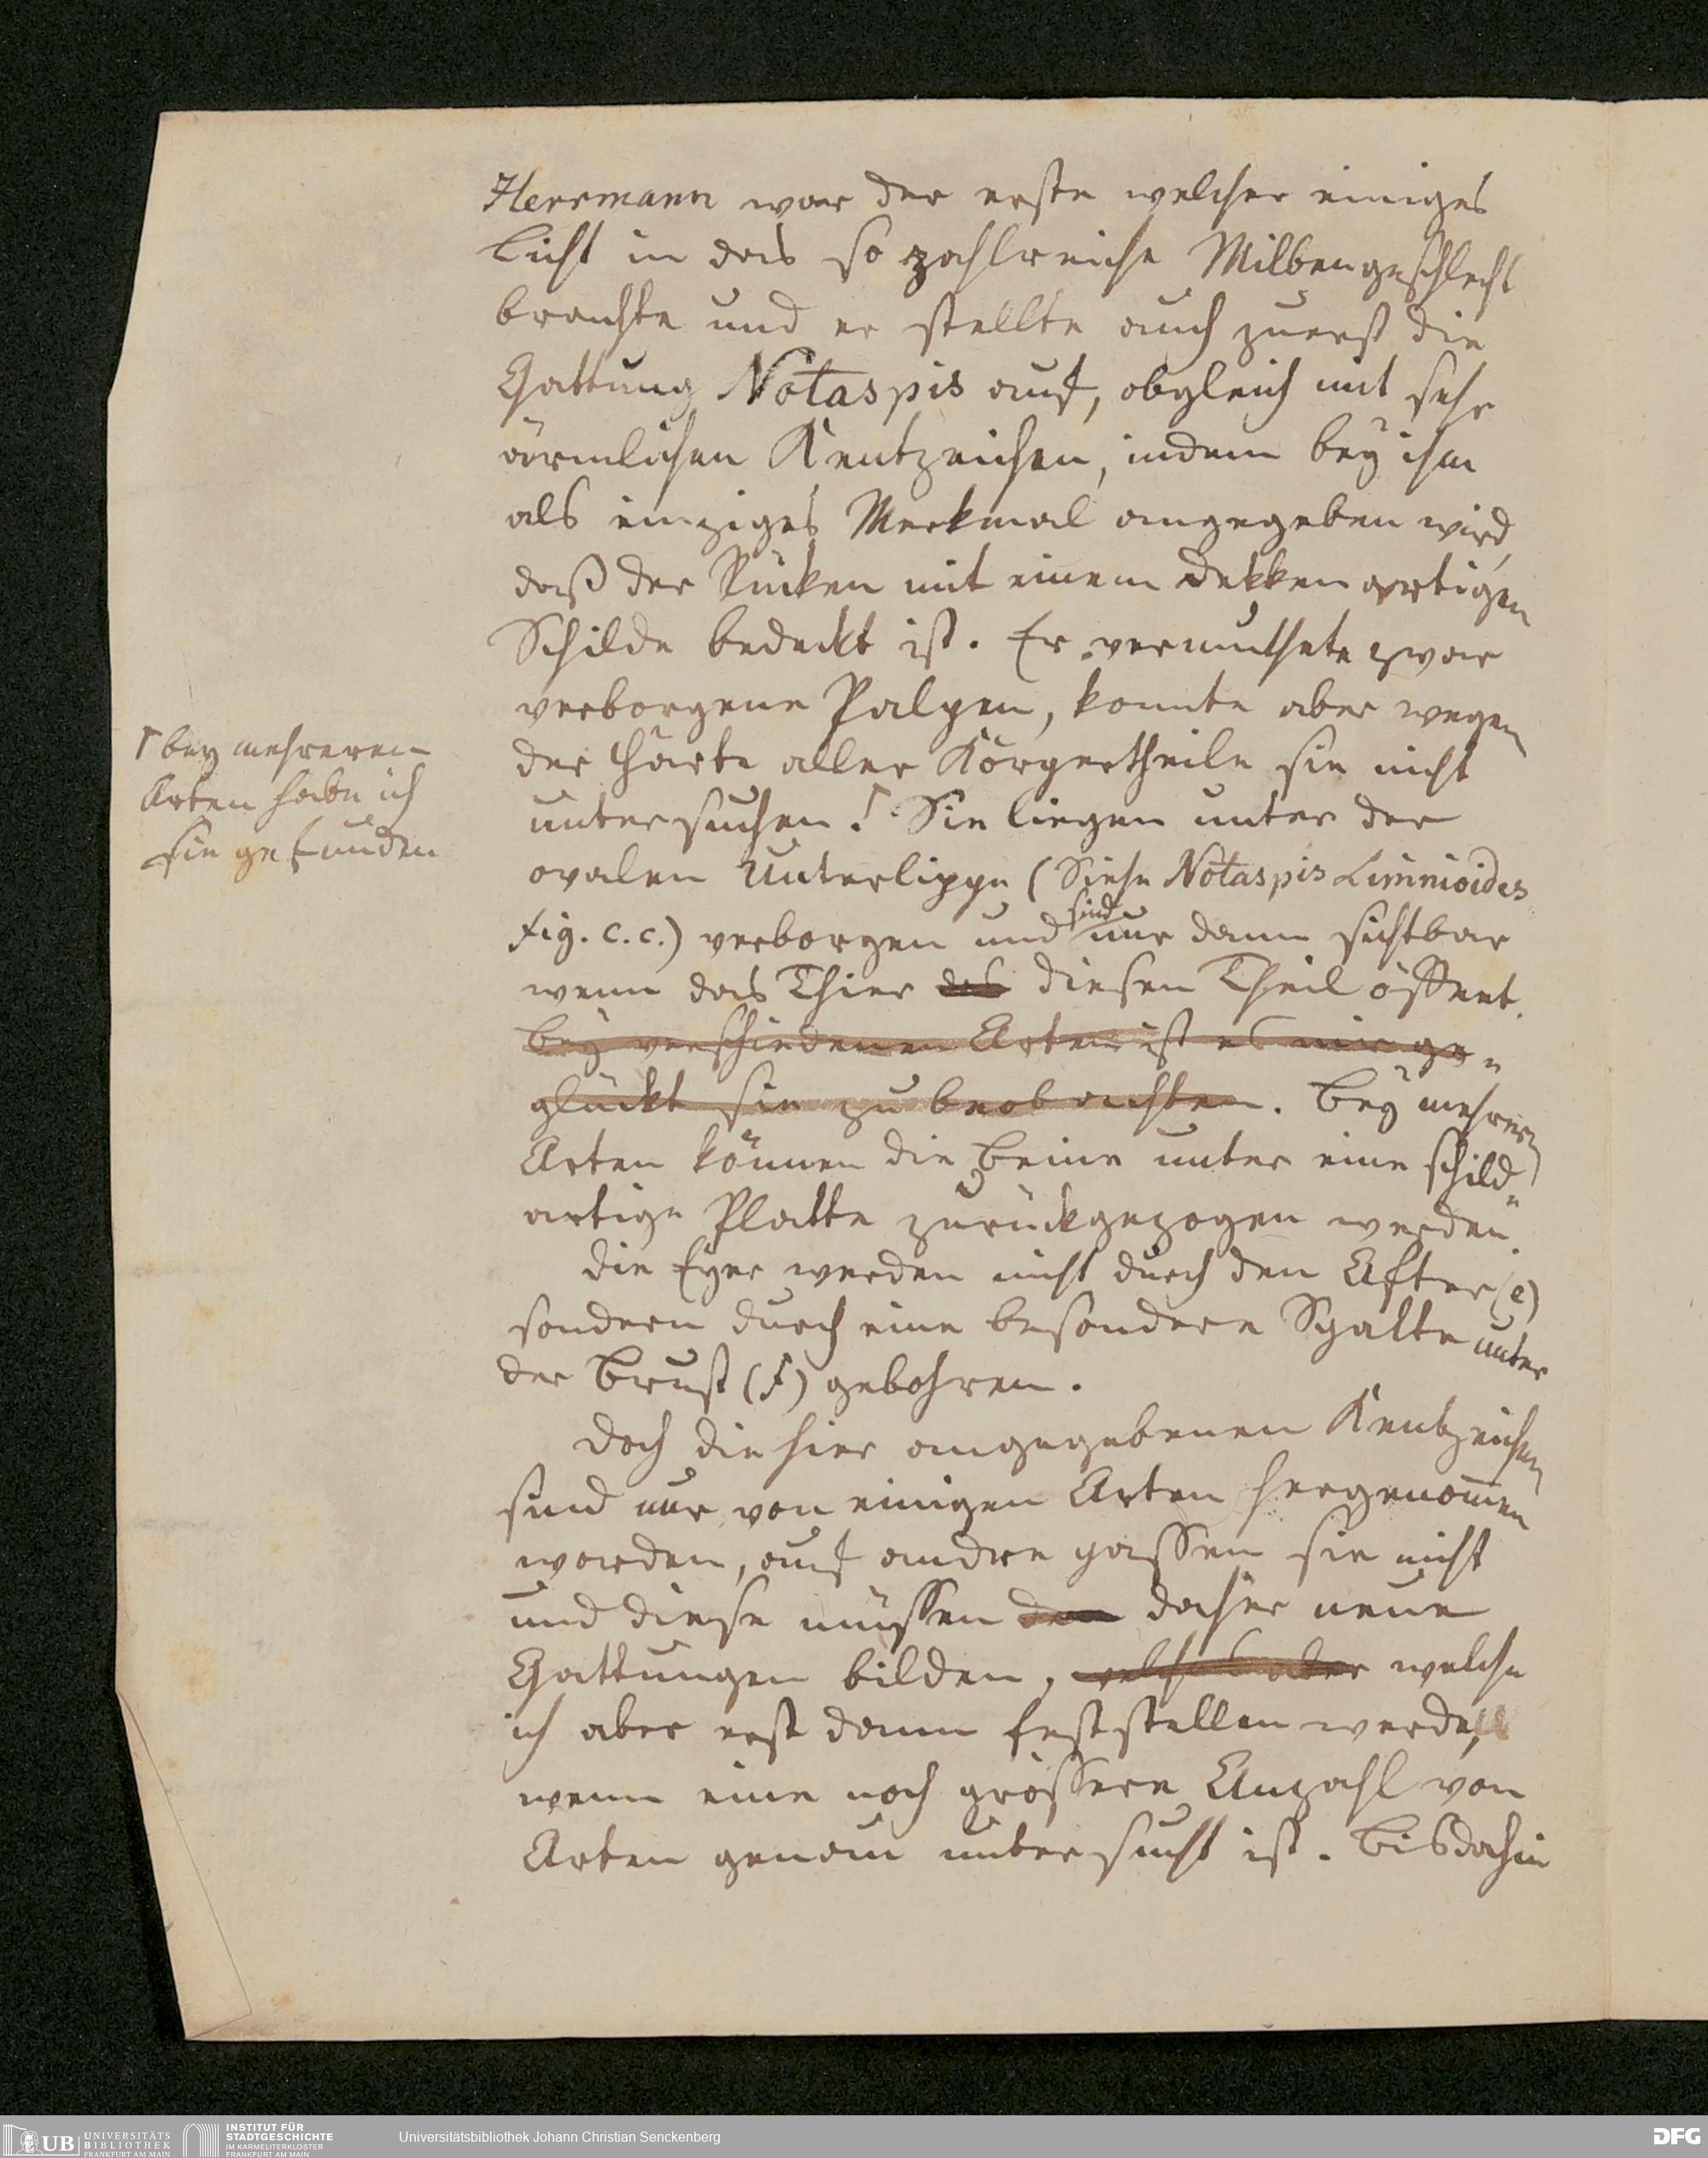 Herrmann war der erste welcher einiges
Licht in das so zahlreiche Milbengeschlecht
brachte und er stellte auch zuerst die
Gattung Notaspis auf, obgleich mit sehr
ärmlichen Kentzeichen, indem bey ihm
als einziges Merkmal angegeben wird,
daß der Rücken mit einem dekken artigen
Schilde bedeckt ist. Er vermuthete zwar
verborgene Palpen, konnte aber wegen
der Härte aller Körpertheile sie nicht
untersuchen. ſ Sie liegen unter der
ovalen Unterlippe (Siehe Notaspis Limnioides
fig. c. c.) verborgen und sind nur dann sichtbar
wenn das Thier das diesen Theil öffnet.
Bey verschiedenen Arten ist es mir ge„
glückt sie zu beobachten. Bey mehrern
Arten können die Beine unter eine schild„
artige Platte zurückgezogen werden.
Die Eyer werden nicht durch den After (e)
sondern durch eine besondere Spalte unter
der Brust (f) gebohren.
Doch die hier angegebenen Kentzeichen
sind nur von einigen Arten hergenom̄en
worden, auf andre passen sie nicht
und diese müssen den daher neue
Gattungen bilden, welches aber welche
ich aber erst dann feststellen werde,
wenn eine noch grössere Anzahl von
Arten genau untersucht ist. Bis dahin
ſ bey mehreren
Arten habe ich
sie gefunden
UB UNIVERSITÄTS
BIBLIOTHEK
FRANKFURT AM MAIN
INSTITUT FÜR
STADTGESCHICHTE
IM KARMELITERKLOSTER
FRANKFURT AM MAIN
Universitätsbibliothek Johann Christian Senckenberg
DFG